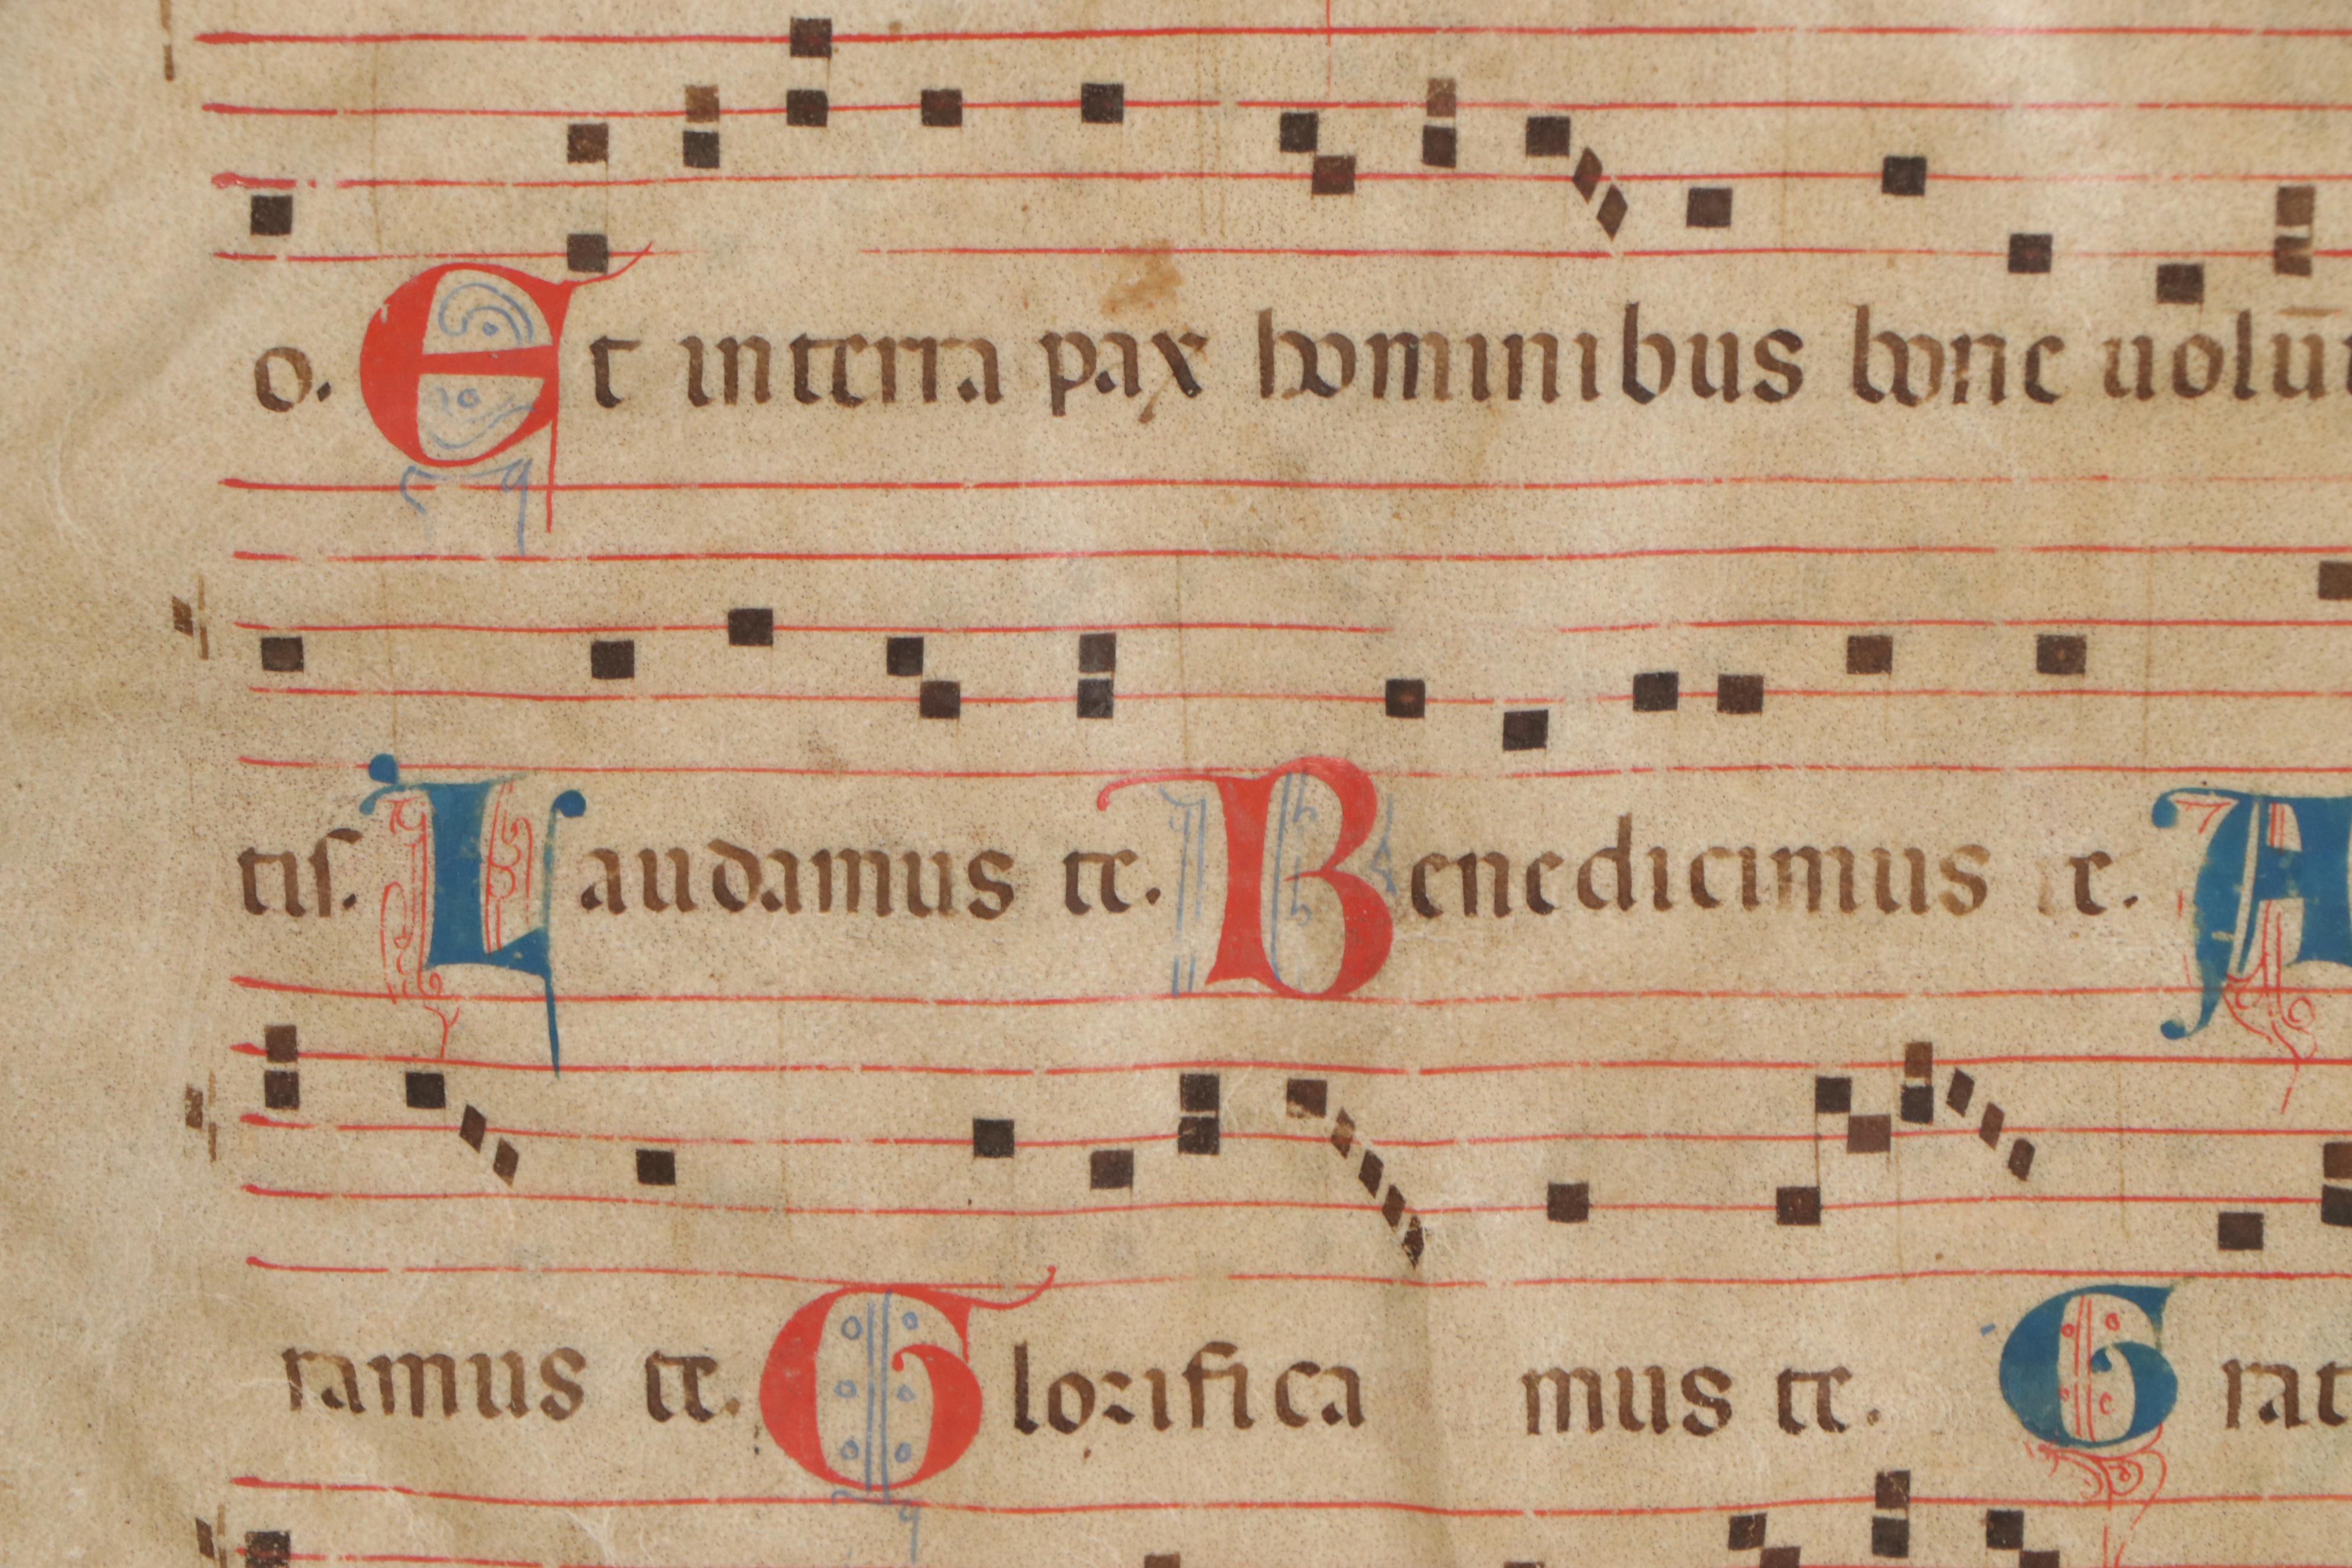 o. Et in terra pax hominibus bone uolū
tis. Laudamus te. Benedicimus te. A
ramus te. Glorifica mus te. Grat